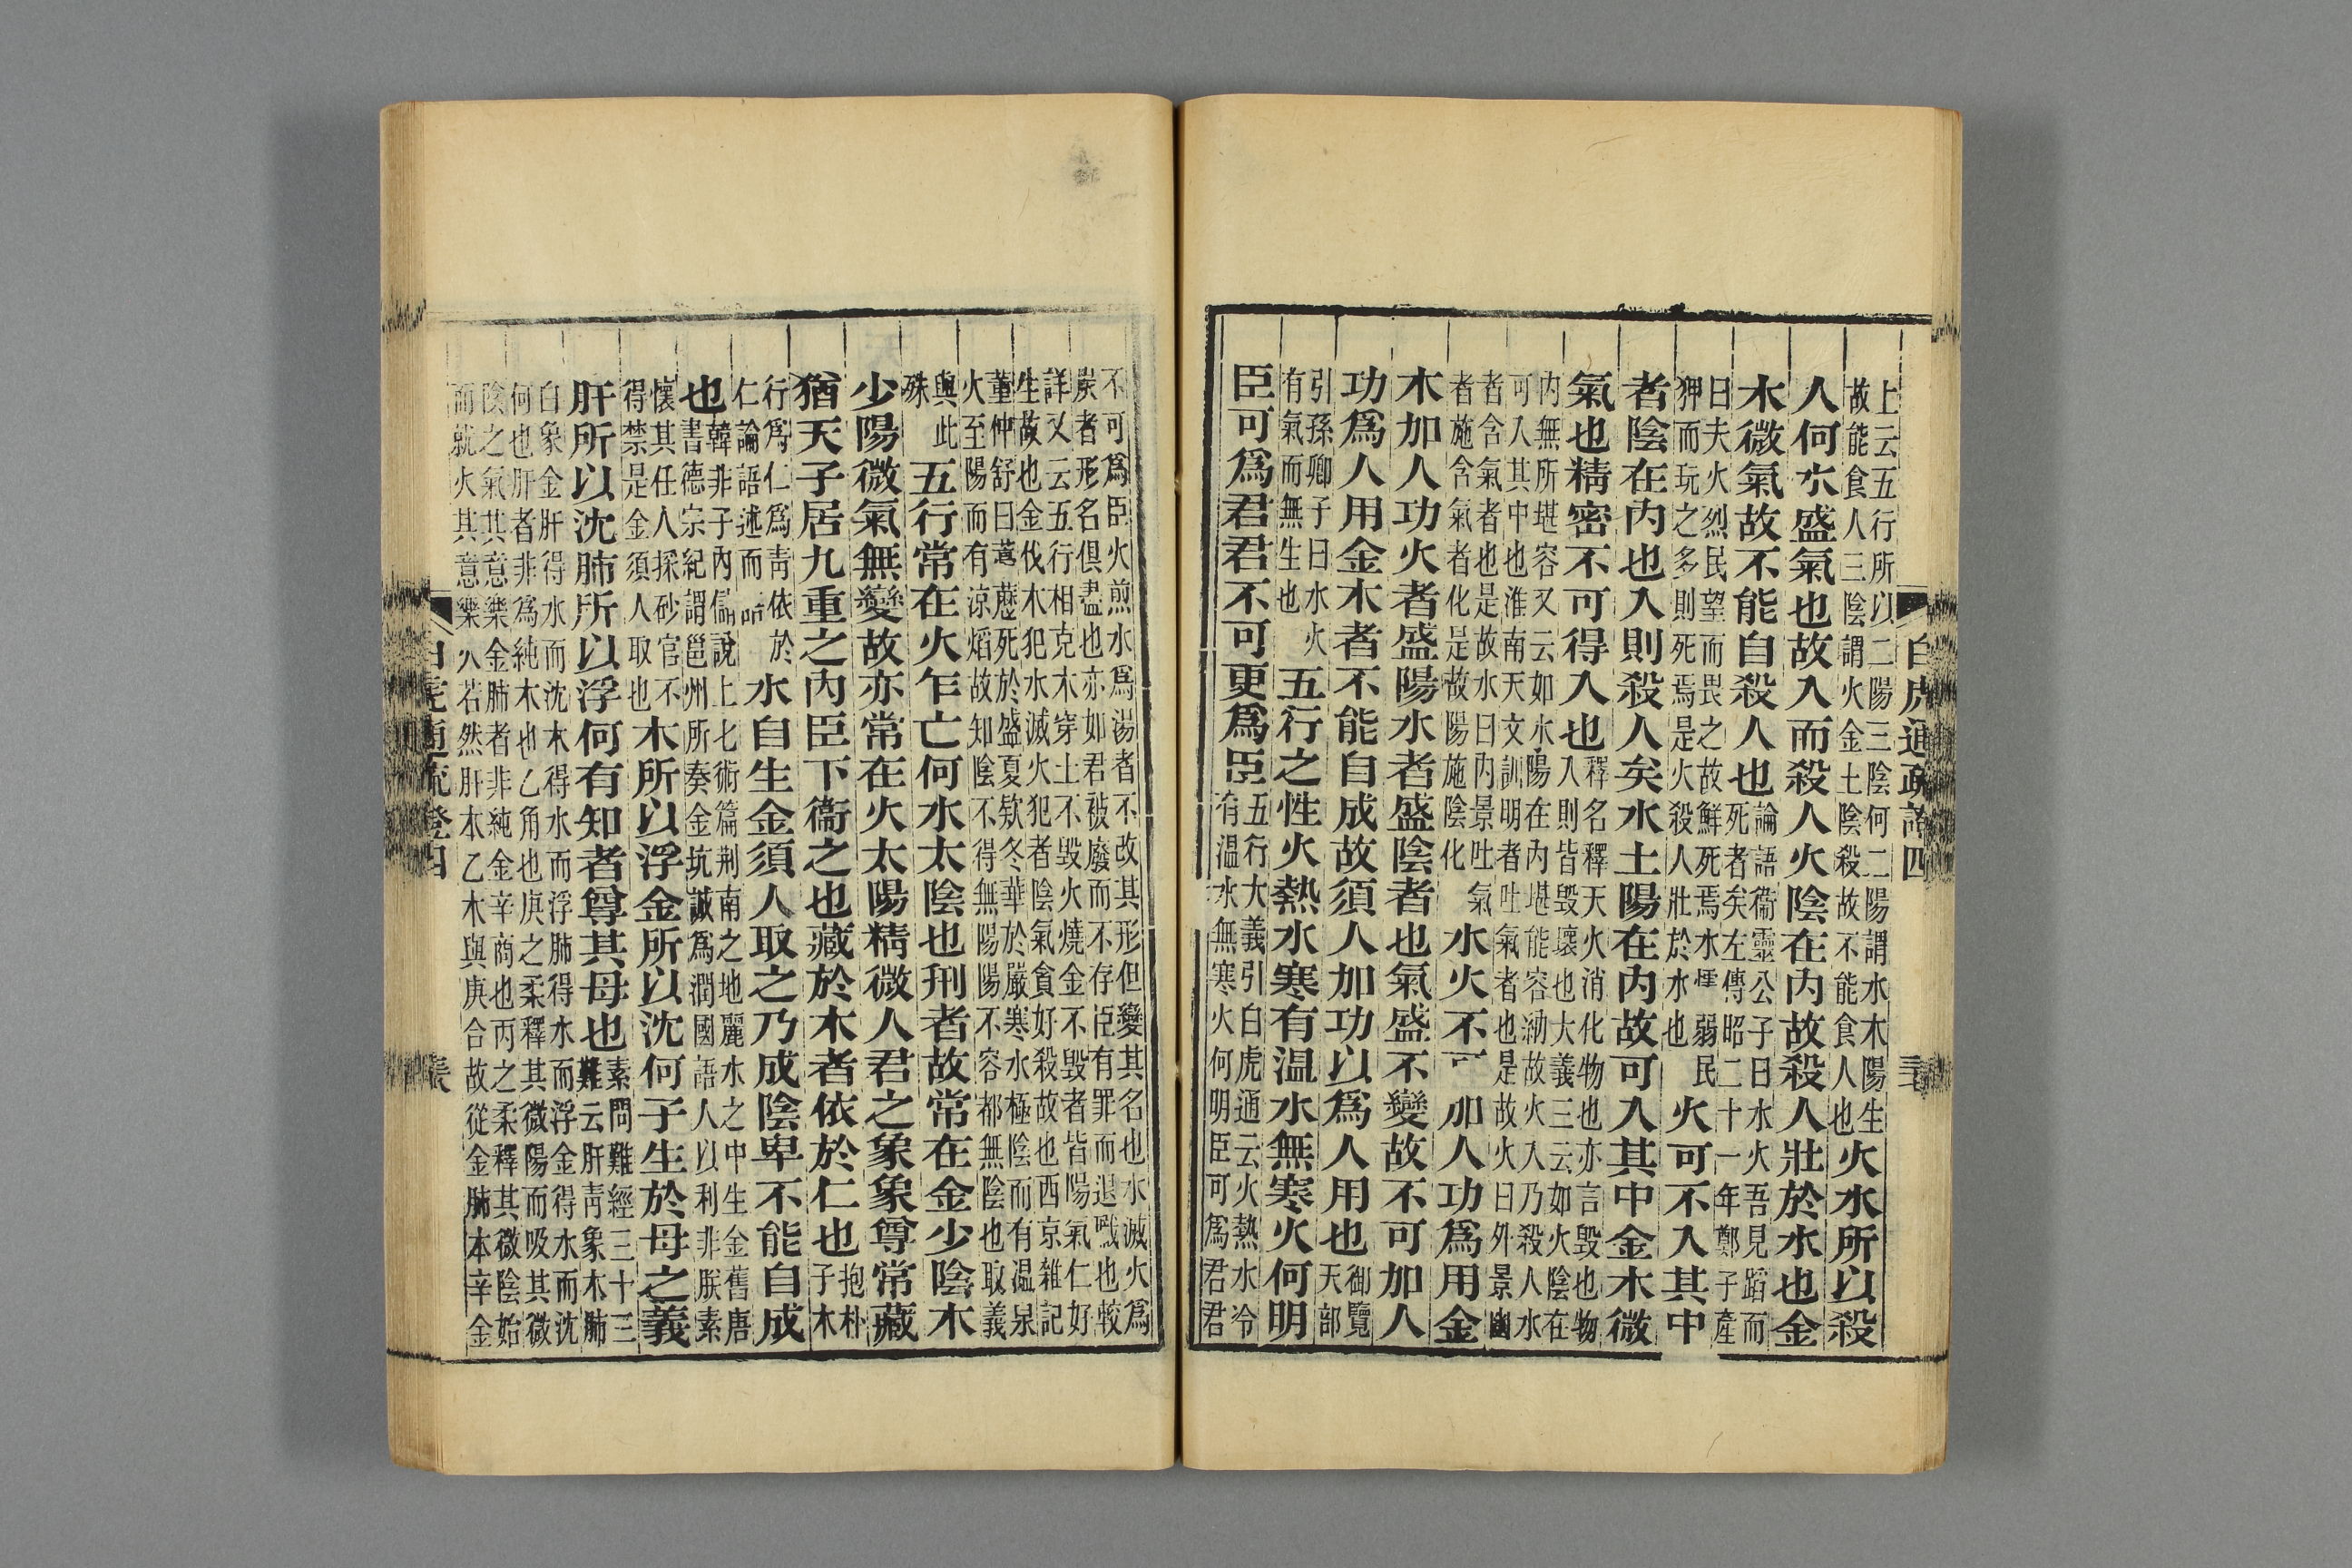 白虎通疏證四
上云五行所以二陽三陰何二陽謂水木陽生
故能食人三陰謂火金土陰殺故不能食人也
火水所以殺
人何水盛氣也故入而殺人火陰在內故殺人壯於水也金
木微氣故不能自殺人也
論語衞靈公子曰水火吾見蹈而
死者矣左傳昭二十一年鄭子產
曰夫火烈民望而畏之故鮮死焉水弱民
狎而玩之多則死焉是火殺人壯於水也
火可不入其中
者陰在內也入則殺人矣水土陽在內故可入其中金木微
氣也精密不可得入也
釋名釋天火消化物也亦言毀也物
入則皆毀壞也大義三云如火陰在
內無所堪容又云如水陽在內堪能容泑故火入乃殺人水
可入其中也淮南天文訓明者吐氣者也是故火曰外景幽
者含氣者也是故水曰內景吐氣
者施含氣者化是故陽施陰化
水火不可加人功爲用金
木加人功火者盛陽水者盛陰者也氣盛不變故不可加人
功爲人用金木者不能自成故須人加功以爲人用也
御覽
天部
引孫卿子曰水火
有氣而無生也
五行之性火熱水寒有温水無寒火何明
臣可爲君君不可更爲臣
五行大義引白虎通云火熱水冷
有温水無寒火何明臣可爲君君
不可爲臣火煎水爲湯者不改其形但變其名也水滅火爲
炭者形名俱盡也亦如君被廢而不存臣有罪而退職也較
詳又云五行相克木穿土不毀火燒金不毀者皆陽氣仁好
生故也金伐木犯水滅火犯者陰氣貪好殺故也西京雜記
董仲舒曰葶藶死於盛夏欵冬華於嚴寒水極陰而有温泉
火至陽而有涼熖故知陰不得無陽陽不容都無陰也取義
與此
殊
五行常在火乍亡何水太陰也刑者故常在金少陰木
少陽微氣無變故亦常在火太陽精微人君之象象尊常藏
猶天子居九重之內臣下衞之也藏於木者依於仁也
抱朴
子木
行爲仁爲靑依於
仁論語述而語
水自生金須人取之乃成陰卑不能自成
也
韓非子內儲說上七術篇荆南之地麗水之中生金舊唐
書德宗紀謂邕州所奏金坑誠爲潤國語人以利非朕素
懷其任人採砂官不
得禁是金須人取也
木所以浮金所以沈何子生於母之義
肝所以沈肺所以浮何有知者尊其母也
素問難經三十三
難云肝靑象木肺
白象金肝得水而沈木得水而浮肺得水而浮金得水而沈
何也肝者非爲純木也乙角也庚之柔釋其微陽而吸其微
陰之氣其意樂金肺者非純金辛商也丙之柔釋其微陰始
而就火其意樂火若然肝本乙木與庚合故從金肺本辛金
白虎通疏證四